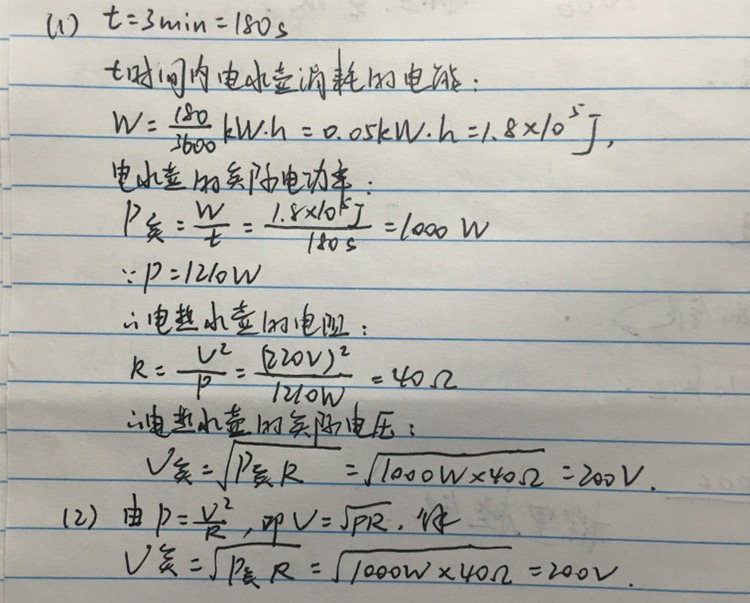 (1) t=3min=180s
t时间内电水壶消耗的电能:
W=180/3600 kW·h=0.05kW·h=1.8×10^5 J,
电水壶的实际电功率:
P实=W/t=1.8×10^5J/180s=1000W
∵P=1210W
∴电热水壶的电阻:
R=V²/P=(220V)²/1210W=40Ω
∴电热水壶的实际电压:
V实=√(P实R)=√(1000W×40Ω)=200V.
(2) 由P=V²/R,即V=√PR.
V实=√(P实R)=√(1000W×40Ω)=200V.